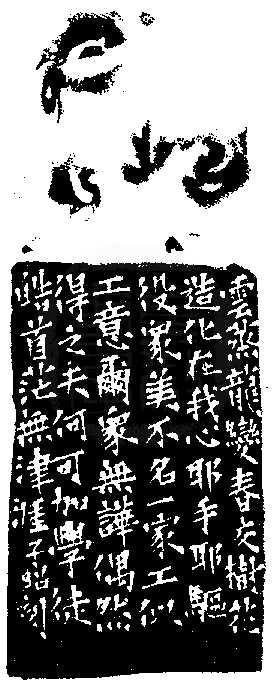 雲蒸龍變春交樹花
造化在我心耶手耶驅
役眾美不名一家工似
工意爾眾無譁偶然
得之夫何可加學徒
皓首茫無津涯子刻